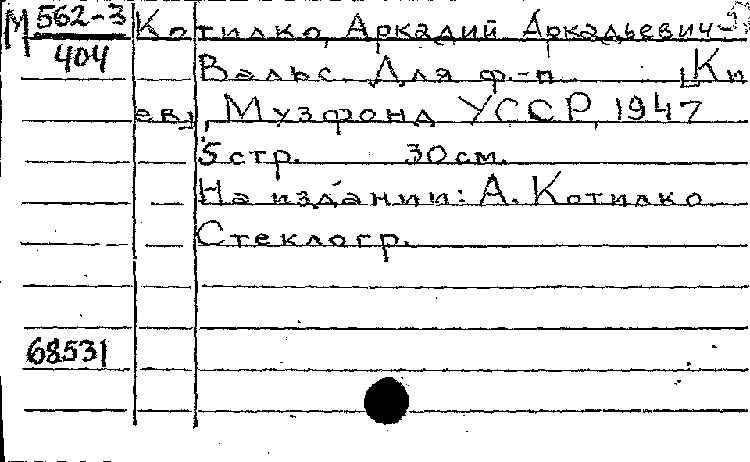 М 562-3 Котилко, Аркадий Аркадьевич
404 Вальс. Для ф.-п. [Ки
ев], Музфонд УССР, 1947
5 стр. 30 см.
На издании: А. Котилко
Стеклогр.
68531